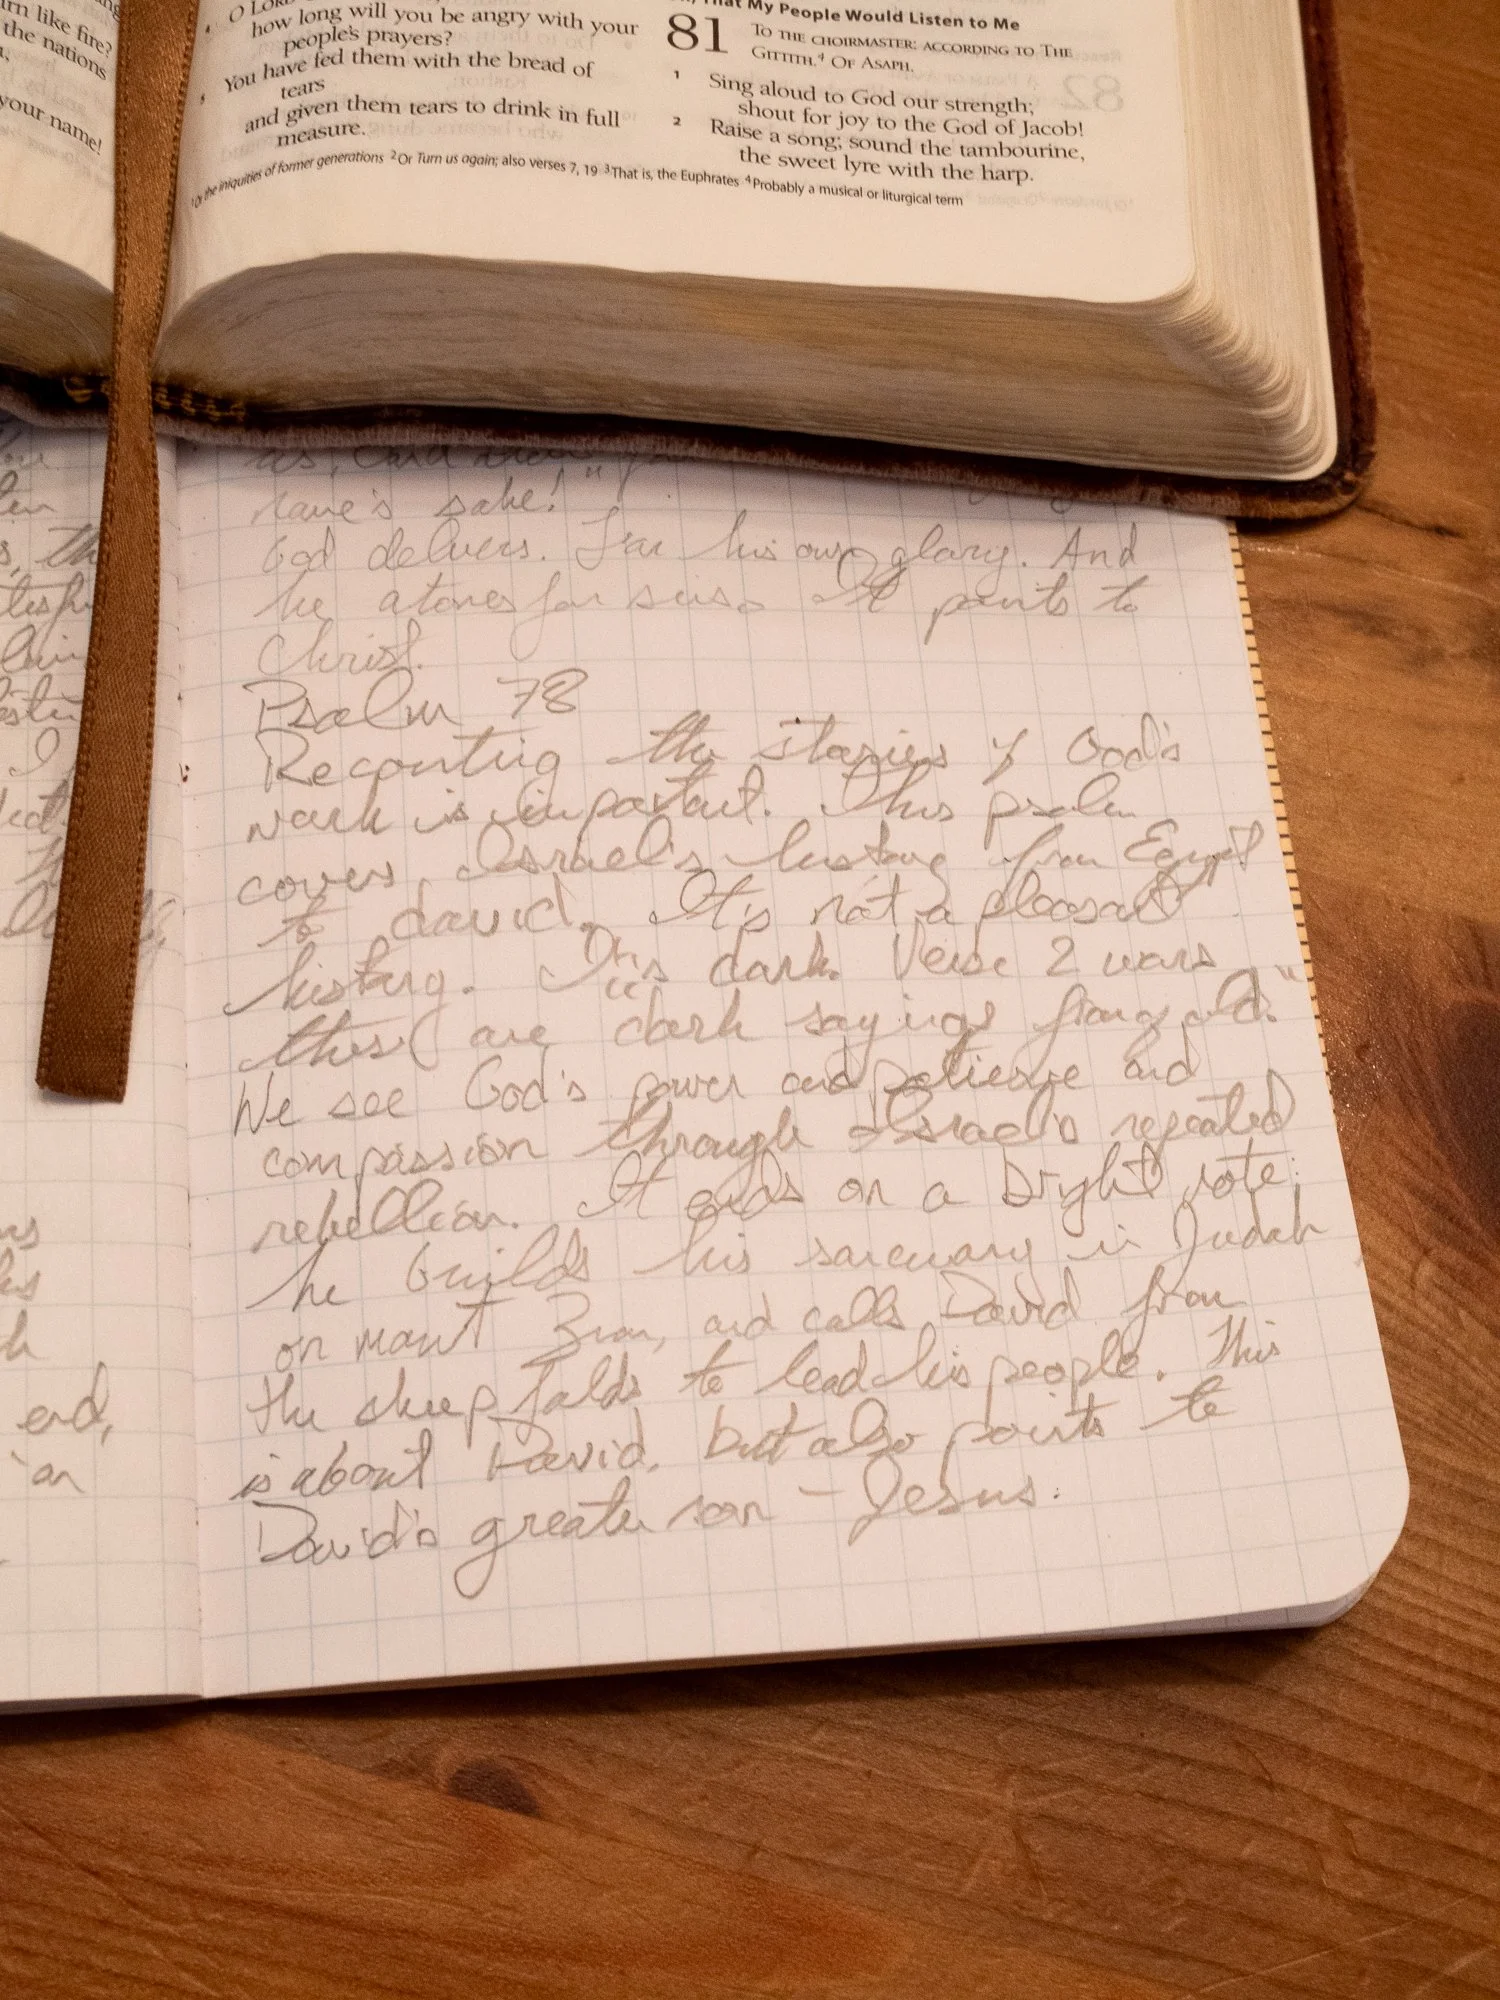 urn like fire?
the nations
your name!
4 O LORD
how long will you be angry with your
people's prayers?
5 You have fed them with the bread of
tears
and given them tears to drink in full
measure.
1 Or the iniquities of former generations 2 Or Turn us again; also verses 7, 19 3 That is, the Euphrates 4 Probably a musical or liturgical term
That My People Would Listen to Me
81 TO THE CHOIRMASTER: ACCORDING TO THE
GITTITH.4 OF ASAPH.
1 Sing aloud to God our strength;
shout for joy to the God of Jacob!
2 Raise a song; sound the tambourine,
the sweet lyre with the harp.
end,
name's sake!"
God delivers. For his own glory. And
he atones for sins. It points to
Christ.
Psalm 78
Recounting the stories of God's
work is important. This psalm
covers Israel's history from Egypt
to david. It's not a pleasant
history. It's dark. Verse 2 warns
these are "dark sayings from old."
We see God's power and patience and
compassion through Israel's repeated
rebellion. It ends on a bright note:
he builds his sancuary in Judah
on mount Zion, and calls David from
the sheep folds to lead his people. This
is about David, but also points to
David's greater son – Jesus.